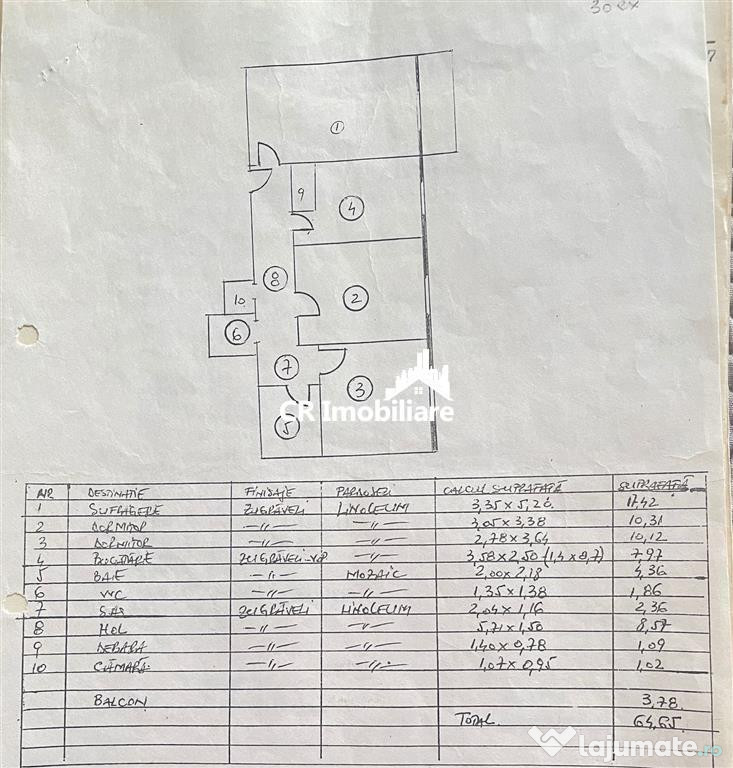 1
9
4
8
2
10
6
7
3
5
CR Imobiliare
NR DESTINATIE FINISAJE PARDOSELI CALCUL SUPRAFATĂ SUPRAFATĂ
1 SUFRAGERIE ZUGRĂVELI LINOLEUM 3,35 x 5,20 17,42
2 DORMITOR -//- -//- 3,05 x 3,38 10,31
3 DORMITOR -//- -//- 2,78 x 3,64 10,12
4 BUCĂTĂRIE ZUGRĂVELI -//- 3,58 x 2,50 (1,4 x 0,7) 7,97
5 BAIE -//- MOZAIC 2,00 x 2,18 4,36
6 WC -//- -//- 1,35 x 1,38 1,86
7 SAS ZUGRĂVELI LINOLEUM 2,04 x 1,16 2,36
8 HOL -//- -//- 5,71 x 1,50 8,57
9 DEBARA -//- -//- 1,40 x 0,78 1,09
10 CĂMARĂ -//- -//- 1,07 x 0,95 1,02
BALCON 3,78
TOTAL 64,65
lajumate.ro